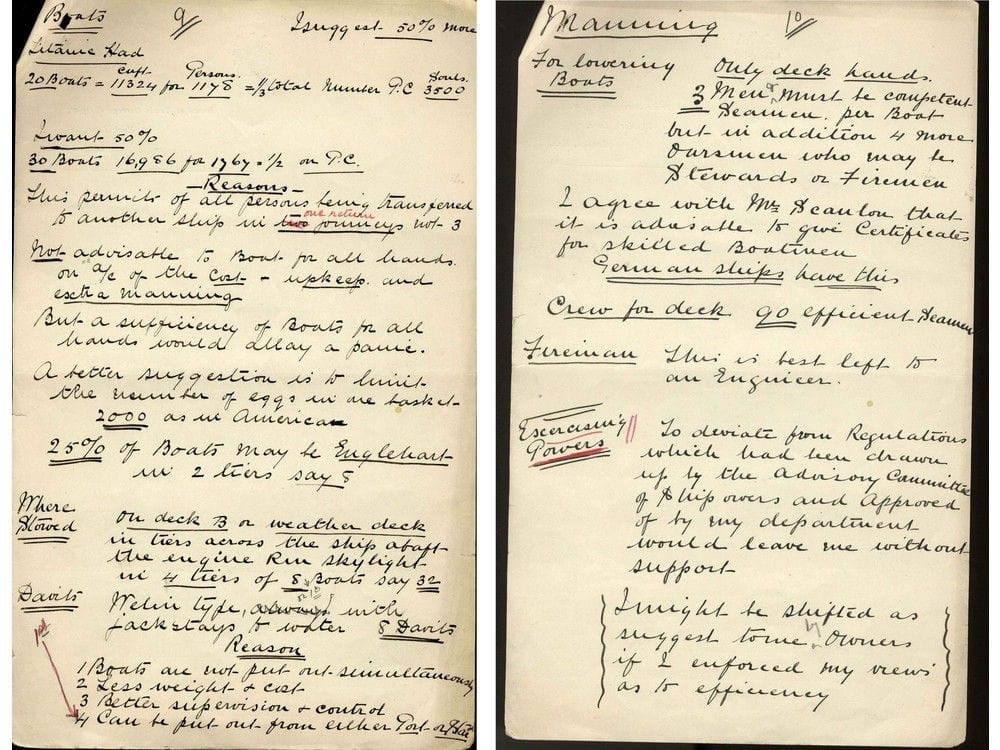 Boats 9/ I suggest 50% more
Titanic Had
cuft Persons Souls
20 Boats = 11324 for 1178 = 1/3 total Number P.C 3500
I want 50%
30 Boats 16,986 for 1767 = 1/2 on P.C.
Reasons
This permits of all persons being transferred
one return
to another ship in two journeys not 3
Not advisable to Boat for all hands
on a/c of the Cost + upkeep and
extra manning
But a sufficiency of Boats for all
hands would allay a panic.
A better suggestion is to limit
the number of eggs in one basket
2000 as in American
25% of Boats may be Englehart
in 2 tiers say 8
Where
Stowed
on deck B or weather deck
in tiers across the ship abaft
the engine Rm skylight
in 4 tiers of 8 Boats say 32
Davits
Welin type, always with
Jackstays to water 8 Davits
Reason
1 Boats are not put out simultaneously
2 Less weight + cost
3 Better supervision + control
4 Can be put out from either Port or Star
Manning 10/
For lowering
Boats
Only deck hands.
3 Men must be competent
Seamen per Boat
but in addition 4 more
Oarsmen who may be
Stewards or Firemen
I agree with Mr Scanlon that
it is advisable to give Certificates
for skilled Boatmen
German ships have this
Crew for deck 90 efficient Seamen
Fireman
This is best left to
an Engineer.
Excercising
Powers
To deviate from Regulations
which had been drawn
up by the Advisory Committee
of Shipowers and Approved
of by my department
would leave me without
support
I might be shifted as
suggest to me by Owners
if I enforced my views
as to efficiency